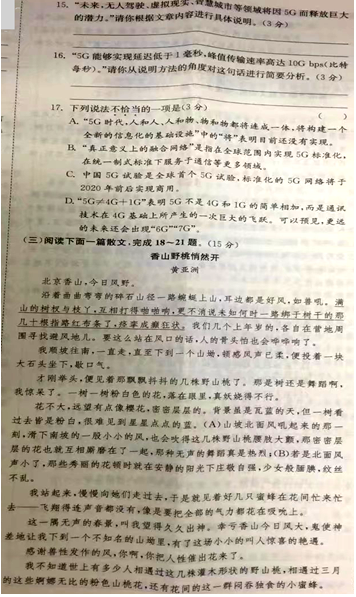 15. “未来,无人驾驶、虚拟现实、智慧城市等领域将因5G而释放巨大
的潜力。”请你根据文章内容进行具体说明。(3分)
16. “5G能够实现延迟低于1毫秒,峰值传输速率高达10G bps(比特
每秒)。”请你从说明方法的角度对这句话进行简要分析。(3分)
17. 下列说法不恰当的一项是(3分) ( )
A. “5G时代,人和人、人和物、物和物都将连成一体,将构建一个
全新的信息化的基础设施”中的“将”表明目前还没有实现。
B. “真正意义上的融合网络”是指在全球范围内实现5G标准化,
在统一制式标准下服务于通信等更多领域。
C. 中国5G试验是全球首个5G试验,标准化的5G网络将于
2020年前后实现商用。
D. “5G≠4G+1G”表明5G不是4G和1G的简单相加,而是通讯
技术在4G基础上所产生的一次巨大的飞跃。可以预见,更远
的未来还会出现“6G”“7G”。
(三)阅读下面一篇散文,完成18~21题。(15分)
香山野桃悄然开
黄亚洲
北京香山,今日风野。
沿着曲曲弯弯的碎石山径一路蜿蜒上山,耳边都是好风,如兽吼。满
山的树杈与枝丫,互相打得啪啪响,更不消说未知何时一路绑于树干的那
几十根指路红布条了,终拿成癫狂状。我们几个上年岁的,各自在营地周
围寻找避风地儿。要这么站在风口的话,人的骨头怕也会哗哗响了。
我顺坡往南,一直走,直至下到一个山坳,顿感风声已柔,便找着一块
大石头坐下,歇口气。
才刚举头,便见着那飘飘抖抖的几株野山桃了。那是树还是舞蹈啊,
我惊呆了。一树一树粉白色的花,落在眼里,真妖娆得不行。
花不大,远望有点像樱花,密密层层的。背景虽是瓦蓝的天,但一树看
过去皆是粉白,很难见到星星点点的蓝。(A)山坡北面风吼起来的那一
刻,滑下南坡的一股小小的风,也会吹得这几株野山桃腰肢大颤,那密密层
层的花也就互相厮磨在了一起,那种无声的舞蹈真是热烈;(B)若是北面风
声小了,那些秀丽的花顿时就在安静的阳光下庄敬自强,少女般腼腆,纹丝
不乱。
我站起来,慢慢向她们走过去,于是就见着好几只蜜蜂在花间忙来忙
去——飞翔得连声音都没有,像是要把全部的气力都花在吸吮上。
这一隅无声的春景,叫我望得久久出神。幸亏香山今日风大,鬼使神
差地让我下到一个不知名的山坳里,有了这场小小的叫人惊喜的艳遇。
感谢兽性发作的风,你啊,你把人性催出花来了。
我不知道世上有多少人相遇过这几株灌木形状的野山桃,相遇过三月
的这些婀娜无比的粉色山桃花,还有花间的这一群闷吞独食的小蜜蜂。